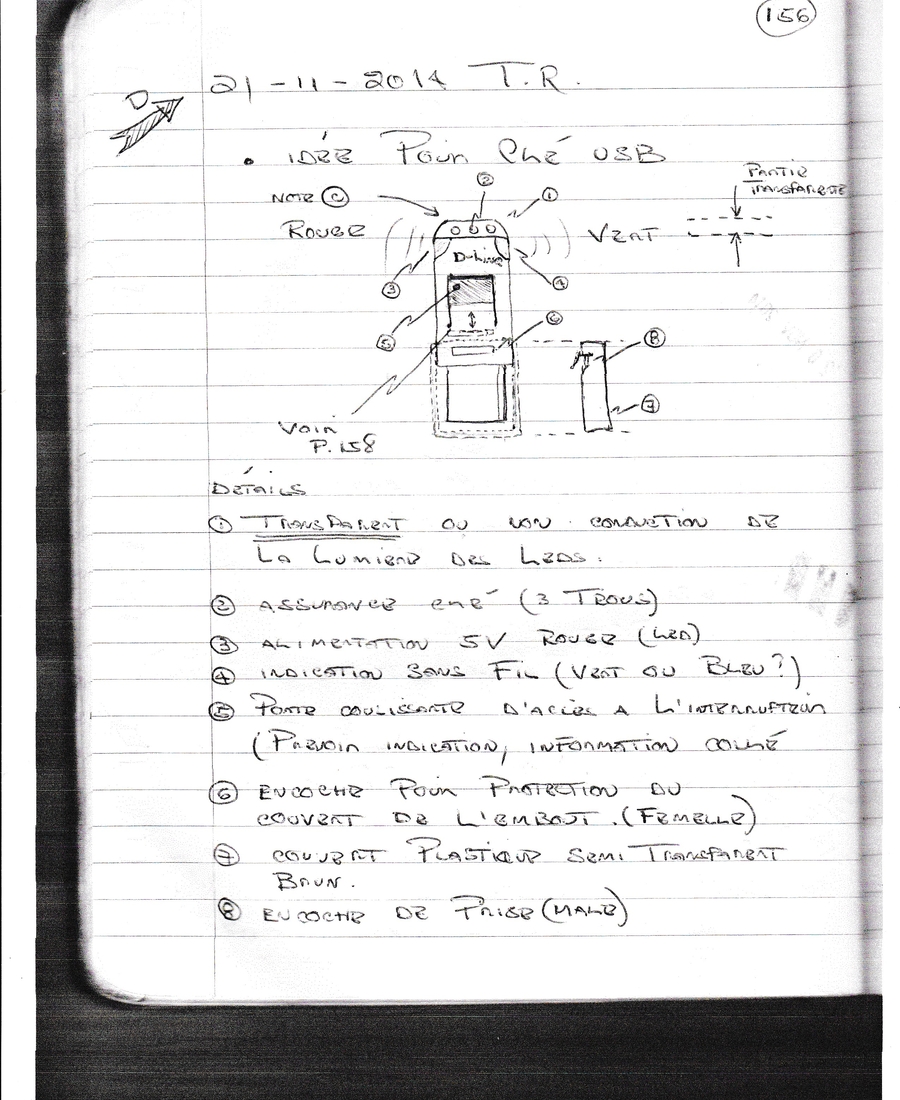 156
D
21-11-2014 T.R.
• IDÉE Pour Clé USB
PARTIE
TRANSPARENTE
NOTE C
2
1
ROUGE
VERT
D-Link
3
4
5
6
8
7
VOIR
P. 158
DÉTAILS
1 TRANSPARENT OU NON CONDUCTION DE
LA LUMIERE DES LEDS.
2 ASSURANCE CLÉ (3 TROUS)
3 ALIMENTATION 5V ROUGE (LED)
4 INDICATION SANS FIL (VERT OU BLEU?)
5 PORTE COULISSANTE D'ACCÈS A L'INTERRUPTEUR
(PRÉVOIR INDICATION, INFORMATION COLLÉ
6 ENCOCHE POUR PROTECTION DU
COUVERT DE L'EMBOUT. (FEMELLE)
7 COUVERT PLASTIQUE SEMI TRANSPARENT
BRUN.
8 ENCOCHE DE PRISE (MALE)